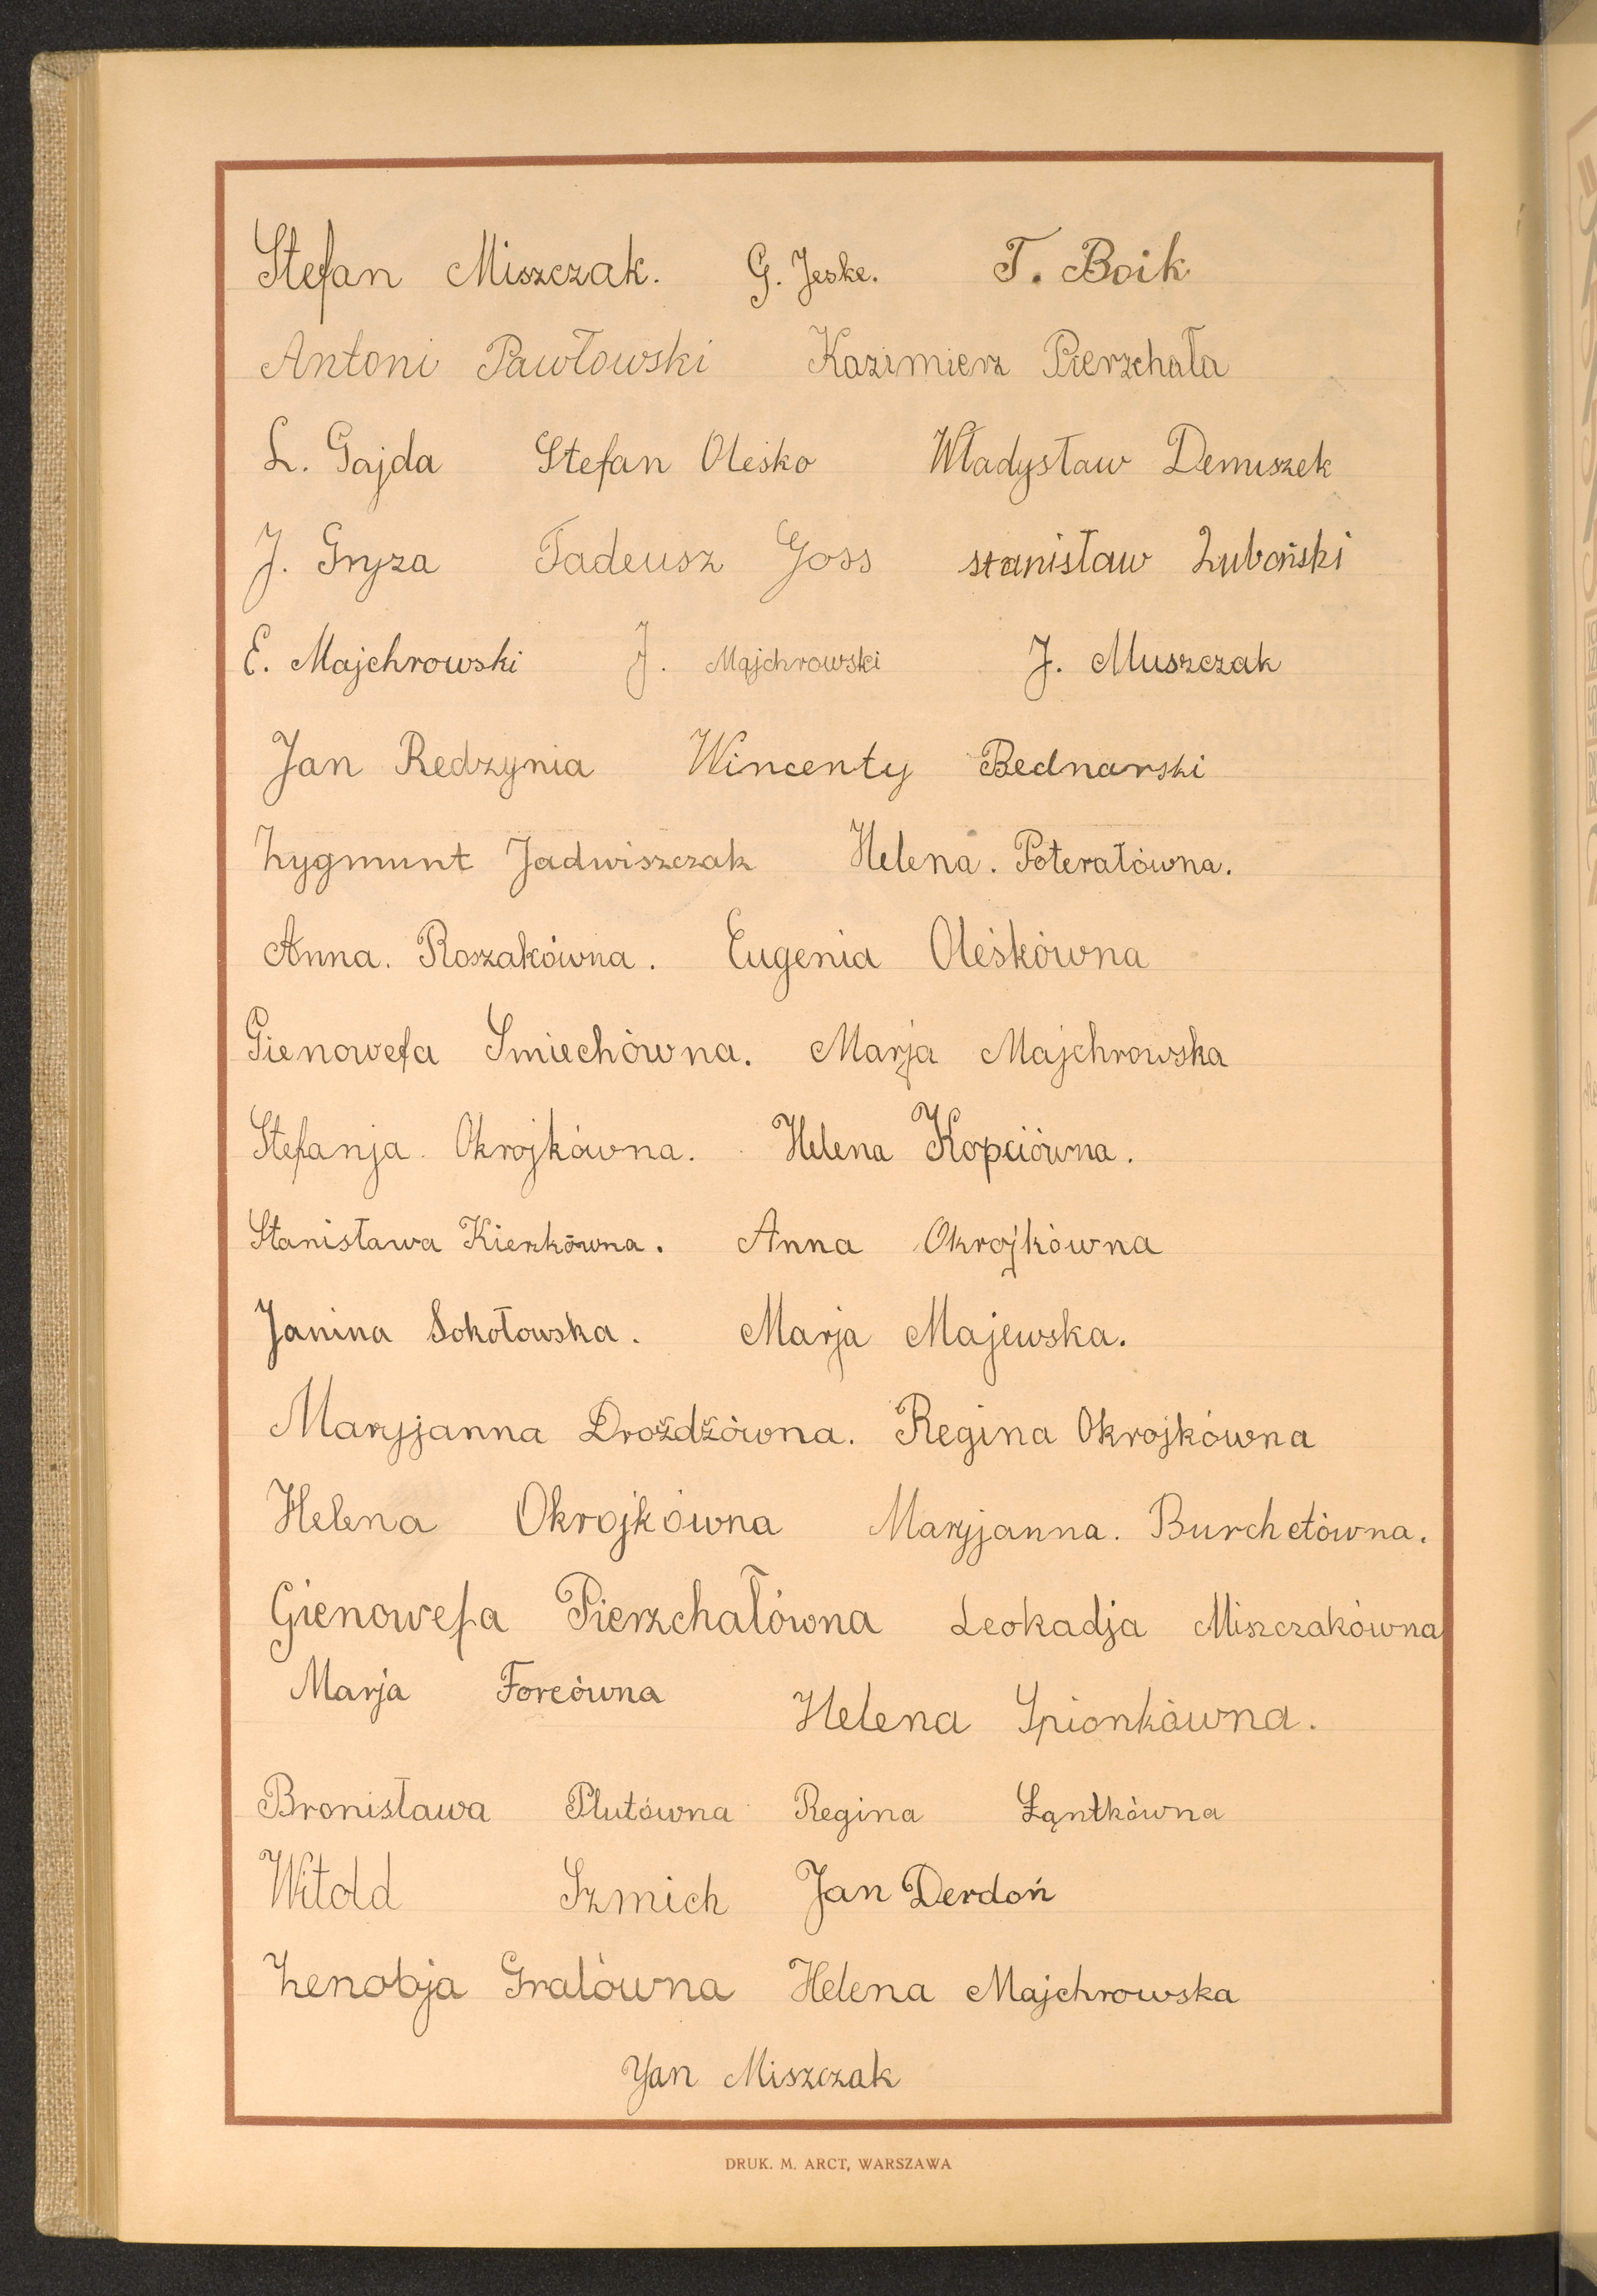 Stefan Miszczak. G. Jeske. T. Boik
Antoni Pawłowski Kazimierz Pierzchała
L. Gajda Stefan Oleśko Władysław Demuszek
J. Gryza Tadeusz Goss stanisław Luboński
E. Majchrowski J. Majchrowski J. Muszczak
Jan Redzynia Wincenty Bednarski
Zygmunt Jadwiszczak Helena. Poterałówna.
Anna. Roszakówna. Eugenia Oleśkówna
Gienowefa Smiechówna. Marja Majchrowska
Stefanja. Okrojkówna. Helena Kopciówna.
Stanisława Kierkówna. Anna Okrojkówna
Janina Sokołowska. Marja Majewska.
Maryjanna Drożdżówna. Regina Okrojkówna
Helena Okrojkówna Maryjanna. Burchetówna.
Gienowefa Pierzchałówna Leokadja Miszczakówna
Marja Forcówna Helena Spionkówna.
Bronisława Plutówna Regina Łąntkówna
Witold Szmich Jan Derdoń
Zenobja Gralówna Helena Majchrowska
Yan Miszczak
DRUK. M. ARCT, WARSZAWA